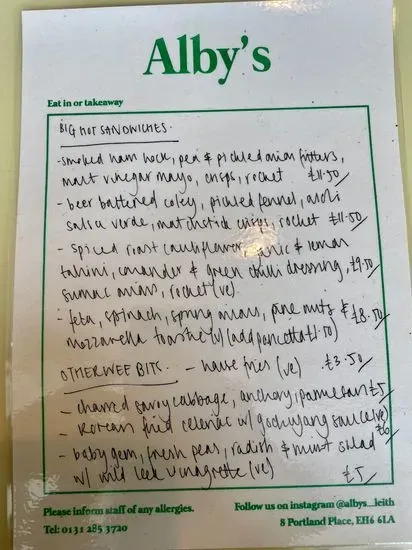 Alby's
Eat in or takeaway
BIG HOT SANDWICHES.
- smoked ham hock, pea & pickled onion fritters,
malt vinegar mayo, crisps, rocket £11.50
- beer battered coley, pickled fennel, aioli
salsa verde, matchstick crisps, rocket £11.50
- spiced roast cauliflower, garlic & lemon
tahini, coriander & green chilli dressing, £9.50
sumac onions, rocket (ve)
- feta, spinach, spring onions, pine nuts & £8.50
mozzarella toastie (v) (add pancetta £1.50)
OTHER WEE BITS. - house fries (ve) £3.50
- charred savoy cabbage, anchovy, parmesan £5
- Korean fried celeriac w/ gochujang sauce (ve)
£6
- baby gem, fresh peas, radish & mint salad
w/ wild leek vinagrette (ve) £5
Please inform staff of any allergies.
Tel: 0131 285 3720
Follow us on instagram @albys_leith
8 Portland Place, EH6 6LA